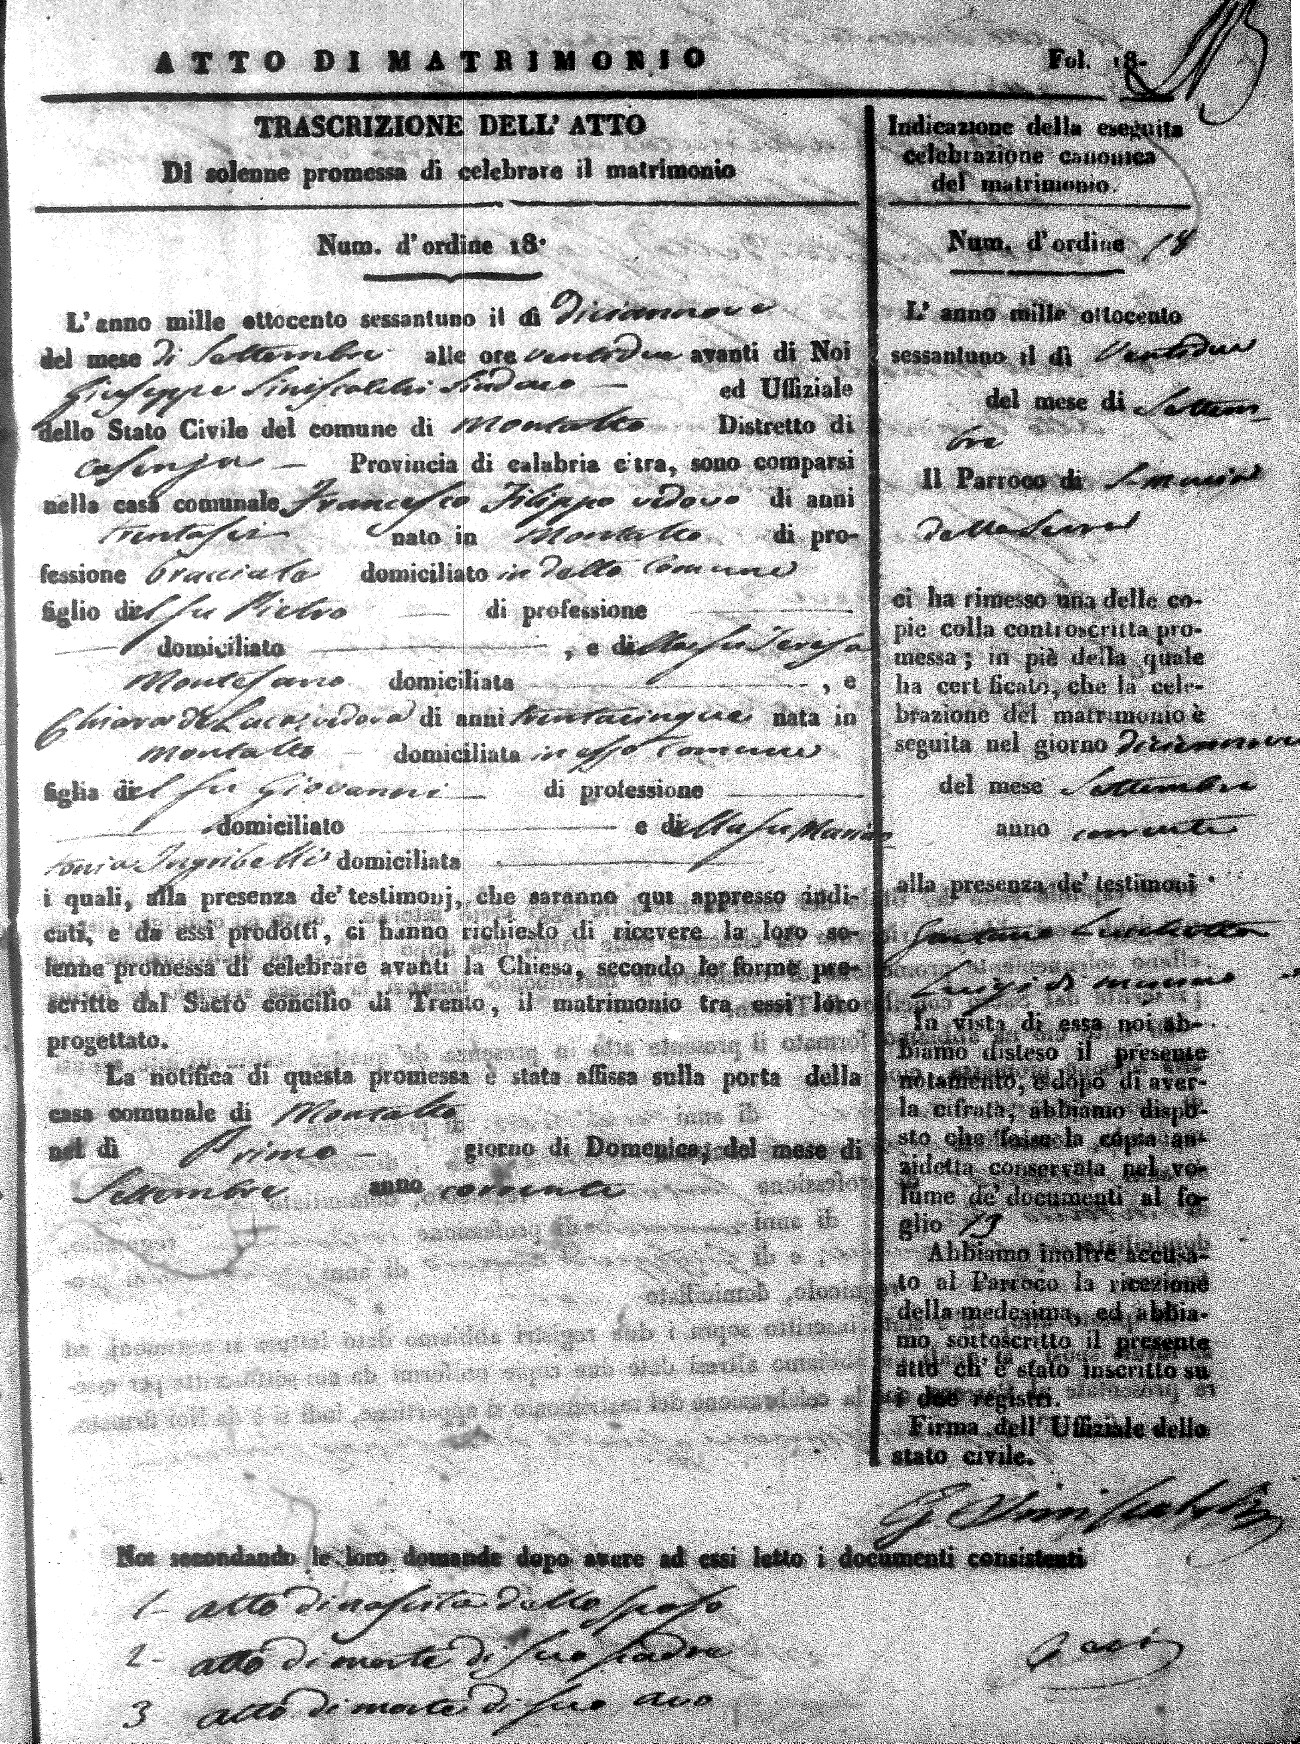 ATTO DI MATRIMONIO
Fol. 18.
TRASCRIZIONE DELL' ATTO
Di solenne promessa di celebrare il matrimonio
Num. d' ordine 18.
L' anno mille ottocento sessantuno il dì Diciannove
del mese di Settembre alle ore ventidue avanti di Noi
Giuseppe Siniscalchi Sindaco — ed Uffiziale
dello Stato Civile del comune di Montalto Distretto di
Cosenza — Provincia di calabria citra, sono comparsi
nella casa comunale Francesco Filippo vedovo di anni
trentasei nato in Montalto di pro-
fessione bracciale domiciliato in detto Comune
figlio del fu Pietro — di professione —
— domiciliato — , e della fu Teresa
Montesano domiciliata — , e
Chiara de Luca vedova di anni trentacinque nata in
Montalto — domiciliata in esso Comune
figlia del fu Giovanni — di professione —
— domiciliato — e della fu Marian
tonia domiciliata —
i quali, alla presenza de' testimonj, che saranno qui appresso indi-
cati, e da essi prodotti, ci hanno richiesto di ricevere la loro so-
lenne promessa di celebrare avanti la Chiesa, secondo le forme pre-
scritte dal Sacro concilio di Trento, il matrimonio tra essi loro
progettato.
La notifica di questa promessa è stata affissa sulla porta della
casa comunale di Montalto
nel dì Primo — giorno di Domenica, del mese di
Settembre anno corrente
Indicazione della eseguita
celebrazione canonica
del matrimonio.
Num. d' ordine 18
L' anno mille ottocento
sessantuno il dì Ventidue
del mese di Settem
bre
Il Parroco di S. Maria
della Serra
ci ha rimesso una delle co-
pie colla controscritta pro-
messa; in piè della quale
ha certificato, che la cele-
brazione del matrimonio è
seguita nel giorno diciannove
del mese Settembre
anno corrente
alla presenza de' testimoni
Gaetano
Luigi di
In vista di essa noi ab-
biamo disteso il presente
notamento, e dopo di aver-
la cifrata, abbiamo dispo-
sto che fosse la copia an-
zidetta conservata nel vo-
lume de' documenti al fo-
glio 19
Abbiamo inoltre accusa-
to al Parroco la ricezione
della medesima, ed abbia-
mo sottoscritto il presente
atto ch' è stato inscritto su
i due registri.
Firma dell' Uffiziale dello
stato civile.
G Siniscalchi
Noi secondando le loro domande dopo avere ad essi letto i documenti consistenti
1- atto di nascita dello sposo
2- atto di morte di suo padre
3 atto di morte di suo avo